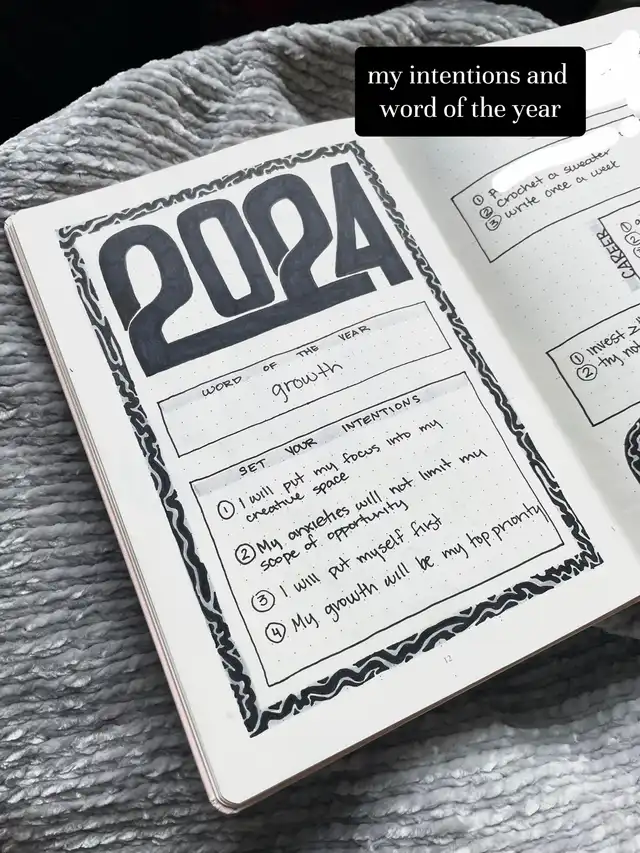 my intentions and
word of the year
2024
WORD OF THE YEAR
growth
SET YOUR INTENTIONS
① I will put my focus into my
creative space
② My anxieties will not limit my
scope of opportunity
③ I will put myself first
④ My growth will be my top priority
12
①
② crochet a sweater
③ write once a week
CAREER
① invest
② try not